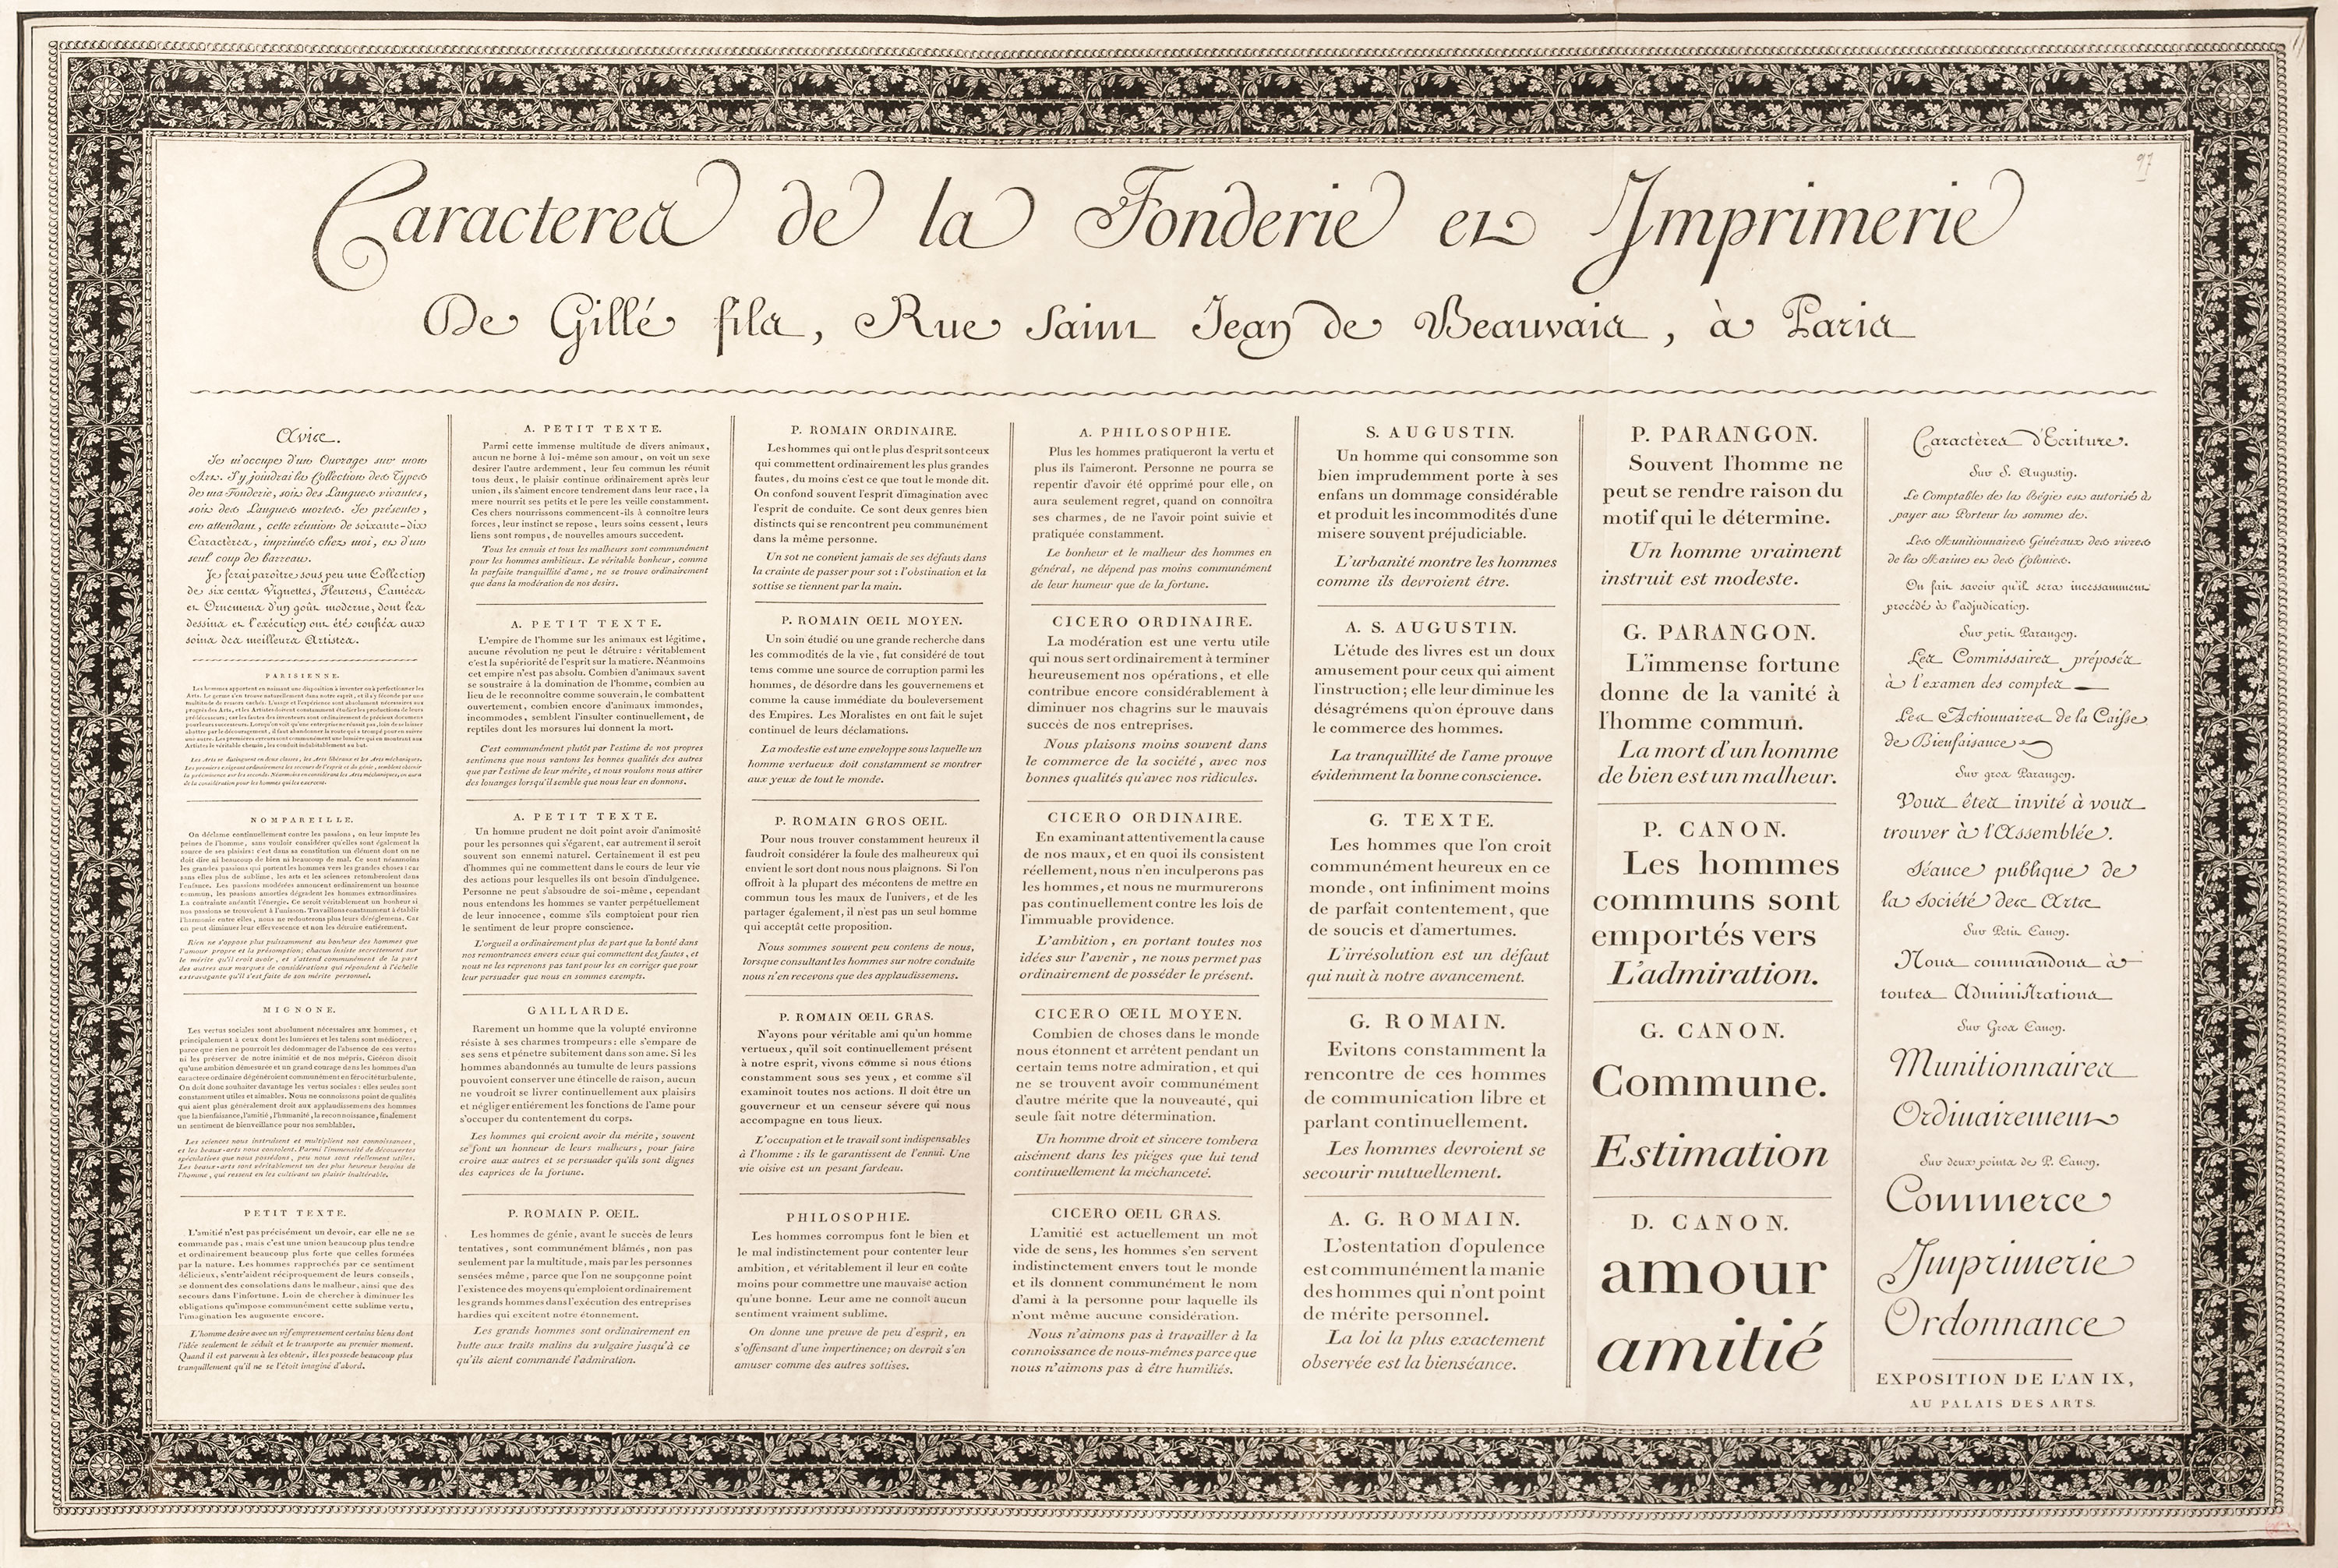 Caracteres de la Fonderie et Imprimerie
De Gillé fils, Rue Saint Jean de Beauvais, à Paris
97
Avis.
Je m'occupe d'un Ouvrage sur mon
Art. J'y joindrai la Collection des Types
de ma Fonderie, soit des Langues vivantes,
soit des Langues mortes. Je présente,
en attendant, cette réunion de soixante-dix
Caractères, imprimés chez moi, et d'un
seul coup de barreau.
Je ferai paroître sous peu une Collection
de six cents Vignettes, Fleurons, Camées
et Ornemens d'un goût moderne, dont les
dessins et l'exécution ont été confiés aux
soins des meilleurs Artistes.
PARISIENNE.
Les hommes apportent en naissant une disposition à inventer ou à perfectionner les
Arts. Le germe s'en trouve naturellement dans notre esprit, et il s'y féconde par une
multitude de ressorts cachés. L'usage et l'expérience sont absolument nécessaires aux
progrès des Arts, et les Artistes doivent constamment étudier les productions de leurs
prédécesseurs; car les fautes des inventeurs sont ordinairement de précieux documens
pour leurs successeurs. Lorsqu'on voit qu'une entreprise ne réussit pas, loin de se laisser
abattre par le découragement, il faut abandonner la route qui a trompé pour en suivre
une autre. Les premières erreurs sont communément une lumière qui en montrant aux
Artistes le véritable chemin, les conduit indubitablement au but.
Les Arts se distinguent en deux classes, les Arts libéraux et les Arts méchaniques.
Les premiers exigeant ordinairement les secours de l'esprit et du génie, semblent obtenir
la prééminence sur les seconds. Néanmoins en considérant les Arts méchaniques, on aura
de la considération pour les hommes qui les exercent.
NOMPAREILLE.
On déclame continuellement contre les passions, on leur impute les
peines de l'homme, sans vouloir considérer qu'elles sont également la
source de ses plaisirs: c'est dans sa constitution un élément dont on ne
doit dire ni beaucoup de bien ni beaucoup de mal. Ce sont néanmoins
les grandes passions qui portent les hommes vers les grandes choses: car
sans elles plus de sublime, les arts et les sciences retomberoient dans
l'enfance. Les passions modérées annoncent ordinairement un homme
commun, les passions amorties dégradent les hommes extraordinaires
La contrainte anéantit l'énergie. Ce seroit véritablement un bonheur si
nos passions se trouvoient à l'unisson. Travaillons constamment à établir
l'harmonie entre elles, nous ne redouterons plus leurs dérèglemens. Car
on peut diminuer leur effervescence et non les détruire entièrement.
Rien ne s'oppose plus puissamment au bonheur des hommes que
l'amour propre et la présomption; chacun insiste secrettement sur
le mérite qu'il croit avoir, et s'attend communément de la part
des autres aux marques de considérations qui répondent à l'échelle
extravagante qu'il s'est faite de son mérite personnel.
MIGNONE.
Les vertus sociales sont absolument nécessaires aux hommes, et
principalement à ceux dont les lumieres et les talens sont médiocres,
parce que rien ne pourroit les dédommager de l'absence de ces vertus
ni les préserver de notre inimitié et de nos mépris. Cicéron disoit
qu'une ambition démesurée et un grand courage dans les hommes d'un
caractere ordinaire dégénéroient communément en férocité turbulente.
On doit donc souhaiter davantage les vertus sociales: elles seules sont
constamment utiles et aimables. Nous ne connoissons point de qualités
qui aient plus généralement droit aux applaudissemens des hommes
que la bienfaisance, l'amitié, l'humanité, la reconnoissance, finalement
un sentiment de bienveillance pour nos semblables.
Les sciences nous instruisent et multiplient nos connoissances,
et les beaux-arts nous consolent. Parmi l'immensité de découvertes
spéculatives que nous possédons, peu nous sont réellement utiles.
Les beaux-arts sont véritablement un des plus heureux besoins de
l'homme, qui ressent en les cultivant un plaisir inaltérable.
PETIT TEXTE.
L'amitié n'est pas précisément un devoir, car elle ne se
commande pas, mais c'est une union beaucoup plus tendre
et ordinairement beaucoup plus forte que celles formées
par la nature. Les hommes rapprochés par ce sentiment
délicieux, s'entr'aident réciproquement de leurs conseils,
se donnent des consolations dans le malheur, ainsi que des
secours dans l'infortune. Loin de chercher à diminuer les
obligations qu'impose communément cette sublime vertu,
l'imagination les augmente encore.
L'homme desire avec un vif empressement certains biens dont
l'idée seulement le séduit et le transporte au premier moment.
Quand il est parvenu à les obtenir, il les possede beaucoup plus
tranquillement qu'il ne se l'étoit imaginé d'abord.
A. PETIT TEXTE.
Parmi cette immense multitude de divers animaux,
aucun ne borne à lui-même son amour, on voit un sexe
desirer l'autre ardemment, leur feu commun les réunit
tous deux, le plaisir continue ordinairement après leur
union, ils s'aiment encore tendrement dans leur race, la
mere nourrit ses petits et le pere les veille constamment.
Ces chers nourrissons commencent-ils à connoître leurs
forces, leur instinct se repose, leurs soins cessent, leurs
liens sont rompus, de nouvelles amours succedent.
Tous les ennuis et tous les malheurs sont communément
pour les hommes ambitieux. Le véritable bonheur, comme
la parfaite tranquillité d'ame, ne se trouve ordinairement
que dans la modération de nos desirs.
A. PETIT TEXTE.
L'empire de l'homme sur les animaux est légitime,
aucune révolution ne peut le détruire: véritablement
c'est la supériorité de l'esprit sur la matiere. Néanmoins
cet empire n'est pas absolu. Combien d'animaux savent
se soustraire à la domination de l'homme, combien au
lieu de le reconnoître comme souverain, le combattent
ouvertement, combien encore d'animaux immondes,
incommodes, semblent l'insulter continuellement, de
reptiles dont les morsures lui donnent la mort.
C'est communément plutôt par l'estime de nos propres
sentimens que nous vantons les bonnes qualités des autres
que par l'estime de leur mérite, et nous voulons nous attirer
des louanges lorsqu'il semble que nous leur en donnons.
A. PETIT TEXTE.
Un homme prudent ne doit point avoir d'animosité
pour les personnes qui s'égarent, car autrement il seroit
souvent son ennemi naturel. Certainement il est peu
d'hommes qui ne commettent dans le cours de leur vie
des actions pour lesquelles ils ont besoin d'indulgence.
Personne ne peut s'absoudre de soi-même, cependant
nous entendons les hommes se vanter perpétuellement
de leur innocence, comme s'ils comptoient pour rien
le sentiment de leur propre conscience.
L'orgueil a ordinairement plus de part que la bonté dans
nos remontrances envers ceux qui commettent des fautes, et
nous ne les reprenons pas tant pour les en corriger que pour
leur persuader que nous en sommes exempts.
GAILLARDE.
Rarement un homme que la volupté environne
résiste à ses charmes trompeurs: elle s'empare de
ses sens et pénetre subitement dans son ame. Si les
hommes abandonnés au tumulte de leurs passions
pouvoient conserver une étincelle de raison, aucun
ne voudroit se livrer continuellement aux plaisirs
et négliger entiérement les fonctions de l'ame pour
s'occuper du contentement du corps.
Les hommes qui croient avoir du mérite, souvent
se font un honneur de leurs malheurs, pour faire
croire aux autres et se persuader qu'ils sont dignes
des caprices de la fortune.
P. ROMAIN P. OEIL.
Les hommes de génie, avant le succès de leurs
tentatives, sont communément blâmés, non pas
seulement par la multitude, mais par les personnes
sensées même, parce que l'on ne soupçonne point
l'existence des moyens qu'emploient ordinairement
les grands hommes dans l'exécution des entreprises
hardies qui excitent notre étonnement.
Les grands hommes sont ordinairement en
butte aux traits malins du vulgaire jusqu'à ce
qu'ils aient commandé l'admiration.
P. ROMAIN ORDINAIRE.
Les hommes qui ont le plus d'esprit sont ceux
qui commettent ordinairement les plus grandes
fautes, du moins c'est ce que tout le monde dit.
On confond souvent l'esprit d'imagination avec
l'esprit de conduite. Ce sont deux genres bien
distincts qui se rencontrent peu communément
dans la même personne.
Un sot ne convient jamais de ses défauts dans
la crainte de passer pour sot: l'obstination et la
sottise se tiennent par la main.
P. ROMAIN OEIL MOYEN.
Un soin étudié ou une grande recherche dans
les commodités de la vie, fut considéré de tout
tems comme une source de corruption parmi les
hommes, de désordre dans les gouvernemens et
comme la cause immédiate du bouleversement
des Empires. Les Moralistes en ont fait le sujet
continuel de leurs déclamations.
La modestie est une enveloppe sous laquelle un
homme vertueux doit constamment se montrer
aux yeux de tout le monde.
P. ROMAIN GROS OEIL.
Pour nous trouver constamment heureux il
faudroit considérer la foule des malheureux qui
envient le sort dont nous nous plaignons. Si l'on
offroit à la plupart des mécontens de mettre en
commun tous les maux de l'univers, et de les
partager également, il n'est pas un seul homme
qui acceptât cette proposition.
Nous sommes souvent peu contens de nous,
lorsque consultant les hommes sur notre conduite
nous n'en recevons que des applaudissemens.
P. ROMAIN OEIL GRAS.
N'ayons pour véritable ami qu'un homme
vertueux, qu'il soit continuellement présent
à notre esprit, vivons comme si nous étions
constamment sous ses yeux, et comme s'il
examinoit toutes nos actions. Il doit être un
gouverneur et un censeur sévere qui nous
accompagne en tous lieux.
L'occupation et le travail sont indispensables
à l'homme: ils le garantissent de l'ennui. Une
vie oisive est un pesant fardeau.
PHILOSOPHIE.
Les hommes corrompus font le bien et
le mal indistinctement pour contenter leur
ambition, et véritablement il leur en coûte
moins pour commettre une mauvaise action
qu'une bonne. Leur ame ne connoît aucun
sentiment vraiment sublime.
On donne une preuve de peu d'esprit, en
s'offensant d'une impertinence; on devroit s'en
amuser comme des autres sottises.
A. PHILOSOPHIE.
Plus les hommes pratiqueront la vertu et
plus ils l'aimeront. Personne ne pourra se
repentir d'avoir été opprimé pour elle, on
aura seulement regret, quand on connoîtra
ses charmes, de ne l'avoir point suivie et
pratiquée constamment.
Le bonheur et le malheur des hommes en
général, ne dépend pas moins communément
de leur humeur que de la fortune.
CICERO ORDINAIRE.
La modération est une vertu utile
qui nous sert ordinairement à terminer
heureusement nos opérations, et elle
contribue encore considérablement à
diminuer nos chagrins sur le mauvais
succès de nos entreprises.
Nous plaisons moins souvent dans
le commerce de la société, avec nos
bonnes qualités qu'avec nos ridicules.
CICERO ORDINAIRE.
En examinant attentivement la cause
de nos maux, et en quoi ils consistent
réellement, nous n'en inculperons pas
les hommes, et nous ne murmurerons
pas continuellement contre les lois de
l'immuable providence.
L'ambition, en portant toutes nos
idées sur l'avenir, ne nous permet pas
ordinairement de posséder le présent.
CICERO ŒIL MOYEN.
Combien de choses dans le monde
nous étonnent et arrêtent pendant un
certain tems notre admiration, et qui
ne se trouvent avoir communément
d'autre mérite que la nouveauté, qui
seule fait notre détermination.
Un homme droit et sincere tombera
aisément dans les piéges que lui tend
continuellement la méchanceté.
CICERO OEIL GRAS.
L'amitié est actuellement un mot
vide de sens, les hommes s'en servent
indistinctement envers tout le monde
et ils donnent communément le nom
d'ami à la personne pour laquelle ils
n'ont même aucune considération.
Nous n'aimons pas à travailler à la
connoissance de nous-mêmes parce que
nous n'aimons pas à être humiliés.
S. AUGUSTIN.
Un homme qui consomme son
bien imprudemment porte à ses
enfans un dommage considérable
et produit les incommodités d'une
misere souvent préjudiciable.
L'urbanité montre les hommes
comme ils devroient étre.
A. S. AUGUSTIN.
L'étude des livres est un doux
amusement pour ceux qui aiment
l'instruction; elle leur diminue les
désagrémens qu'on éprouve dans
le commerce des hommes.
La tranquillité de l'ame prouve
évidemment la bonne conscience.
G. TEXTE.
Les hommes que l'on croit
communément heureux en ce
monde, ont infiniment moins
de parfait contentement, que
de soucis et d'amertumes.
L'irrésolution est un défaut
qui nuit à notre avancement.
G. ROMAIN.
Evitons constamment la
rencontre de ces hommes
de communication libre et
parlant continuellement.
Les hommes devroient se
secourir mutuellement.
A. G. ROMAIN.
L'ostentation d'opulence
est communément la manie
des hommes qui n'ont point
de mérite personnel.
La loi la plus exactement
observée est la bienséance.
P. PARANGON.
Souvent l'homme ne
peut se rendre raison du
motif qui le détermine.
Un homme vraiment
instruit est modeste.
G. PARANGON.
L'immense fortune
donne de la vanité à
l'homme commun.
La mort d'un homme
de bien est un malheur.
P. CANON.
Les hommes
communs sont
emportés vers
L'admiration.
G. CANON.
Commune.
Estimation
D. CANON.
amour
amitié
Caractères d'Ecriture.
Sur S. Augustin.
Le Comptable de la Régie est autorisé à
payer au Porteur la somme de.
Les Munitionnaires Généraux des vivres
de la Marine et des Colonies.
On fait savoir qu'il sera incessamment
procédé à l'adjudication.
Sur petit Parangon.
Les Commissaires préposés
à l'examen des comptes
Les Actionnaires de la Caisse
de Bienfaisance
Sur gros Parangon.
Vous êtes invité à vous
trouver à l'Assemblée.
Séance publique de
la Société des Arts
Sur Petit Canon.
Nous commandons à
toutes Administrations
Sur Gros Canon.
Munitionnaires
Ordinairement
Sur deux points de P. Canon.
Commerce
Imprimerie
Ordonnance
EXPOSITION DE L'AN IX,
AU PALAIS DES ARTS.